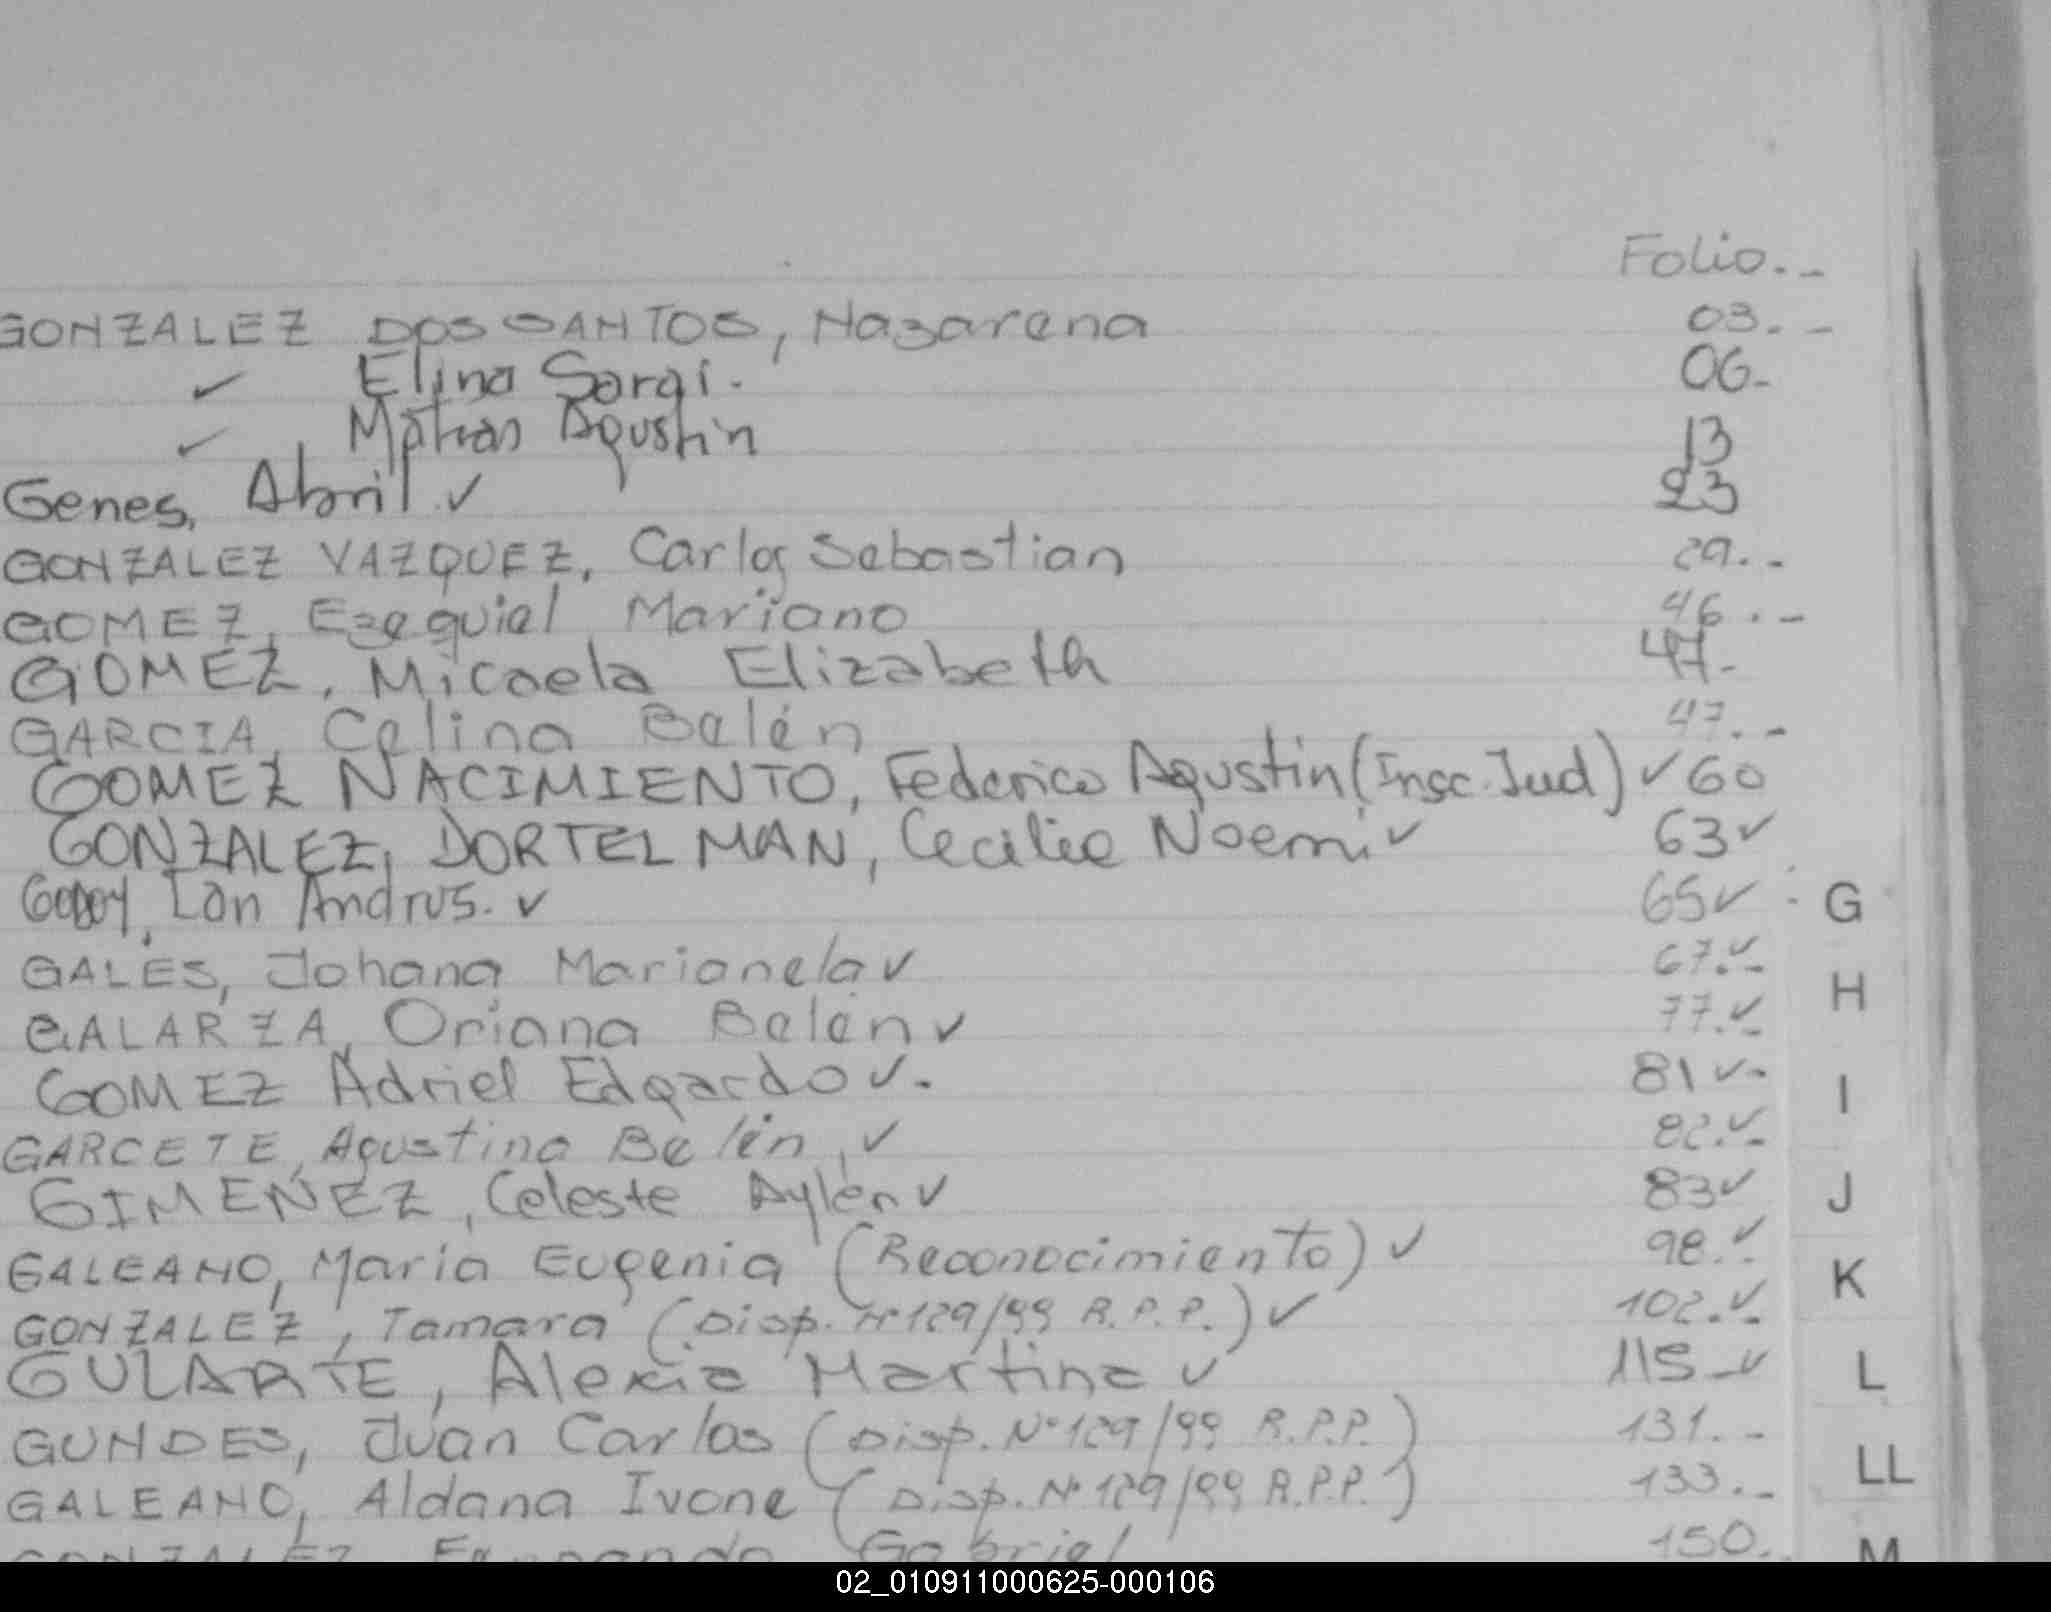 Folio._
GONZALEZ DOS SANTOS, Nazarena 03._
✓ Elina Sargi. 06-
✓ Matias Agustin 13
Genes, Abril ✓ 23
GONZALEZ VAZQUEZ, Carlos Sebastian 29._
GOMEZ, Ezequiel Mariano 46._
GOMEZ, Micaela Elizabeth 47-
GARCIA, Celina Belén 47._
GOMEZ NACIMIENTO, Federico Agustin (Insc. Jud) ✓ 60
GONZALEZ, DORTELMAN, Cecilia Noemi ✓ 63 ✓
Godoy, Ian ✓ 65 ✓
G
GALES, Johana Marianela ✓ 67. ✓
H
GALARZA, Oriana Belén ✓ 77. ✓
GOMEZ Adriel Edgardo ✓. 81 ✓-
I
GARCETE, Agustina Belén, ✓ 82. ✓
GIMENEZ, Celeste Aylén ✓ 83 ✓
J
GALEANO, Maria Eugenia (Reconocimiento) ✓ 98. ✓
K
GONZALEZ, Tamara (Disp. Nº 129/99 R.P.P.) ✓ 102. ✓
GULARTE, Alexia Martina ✓ 115 ✓
L
GUNDES, Juan Carlos (Disp. Nº 129/99 R.P.P.) 131._
LL
GALEANO, Aldana Ivone (Disp. Nº 129/99 R.P.P.) 133._
GONZALEZ Fernando Gabriel 150.
M
02_010911000625-000106